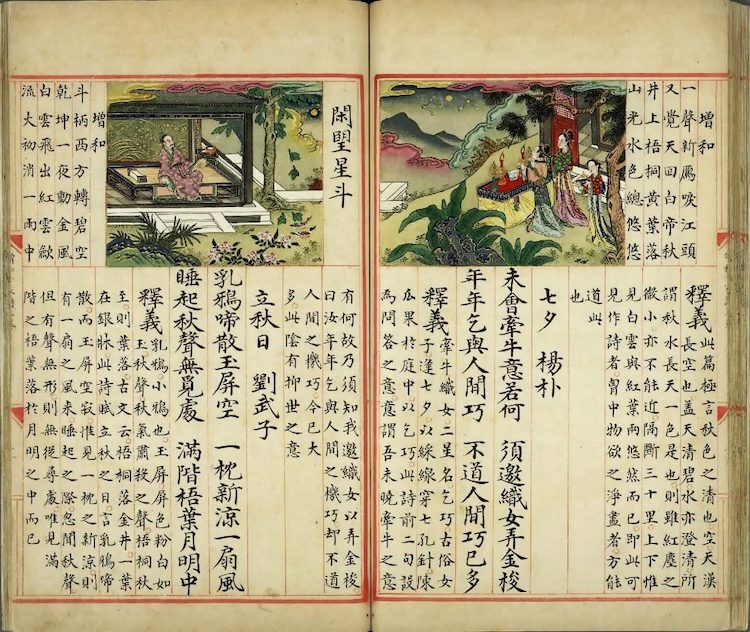 增和
一聲新鴈唳江頭
又覺天回白帝秋
井上梧桐黃葉落
山光水色總悠悠
釋義 此篇極言秋色之清也空天漢
長空也蓋天清碧水亦澄清所
謂秋水長天一色是也則雖紅塵之
微小亦不能近隔斷三十里上下惟
見白雲與紅葉兩悠然而已即此可
見作詩者胷中物欲之淨盡者方能
道此
也
七夕 楊朴
未會牽牛意若何 須邀織女弄金梭
年年乞與人間巧 不道人間巧已多
釋義 牽牛織女二星名乞巧古俗女
子逢七夕以綵線穿七孔針陳
瓜果於庭中以乞巧此詩前二句設
為問答之意意謂吾未曉牽牛之意
閑朢星斗
增和
斗柄西方轉碧空
乾坤一夜動金風
白雲飛出紅雲歛
流火初消一雨中
有何故乃須知我邀織女以弄金梭
曰汝年年乞與人間之機巧却不道
人間之機巧今已大
多此陰有抑世之意
立秋日 劉武子
乳鴉啼散玉屏空 一枕新涼一扇風
睡起秋聲無覓處 滿階梧葉月明中
釋義 乳鴉小鴉也玉屏屏色粉白如
玉秋聲秋氣肅殺之聲梧桐秋
至則葉落古文云梧桐落金井一葉
在銀牀此詩賦立秋之日言乳鴉啼
散而玉屏空寂惟見一枕之新涼則
有一扇之風來睡起之際忽聞秋聲
但有聲無形則無從尋處唯見滿
階之梧葉落於月明之中而已